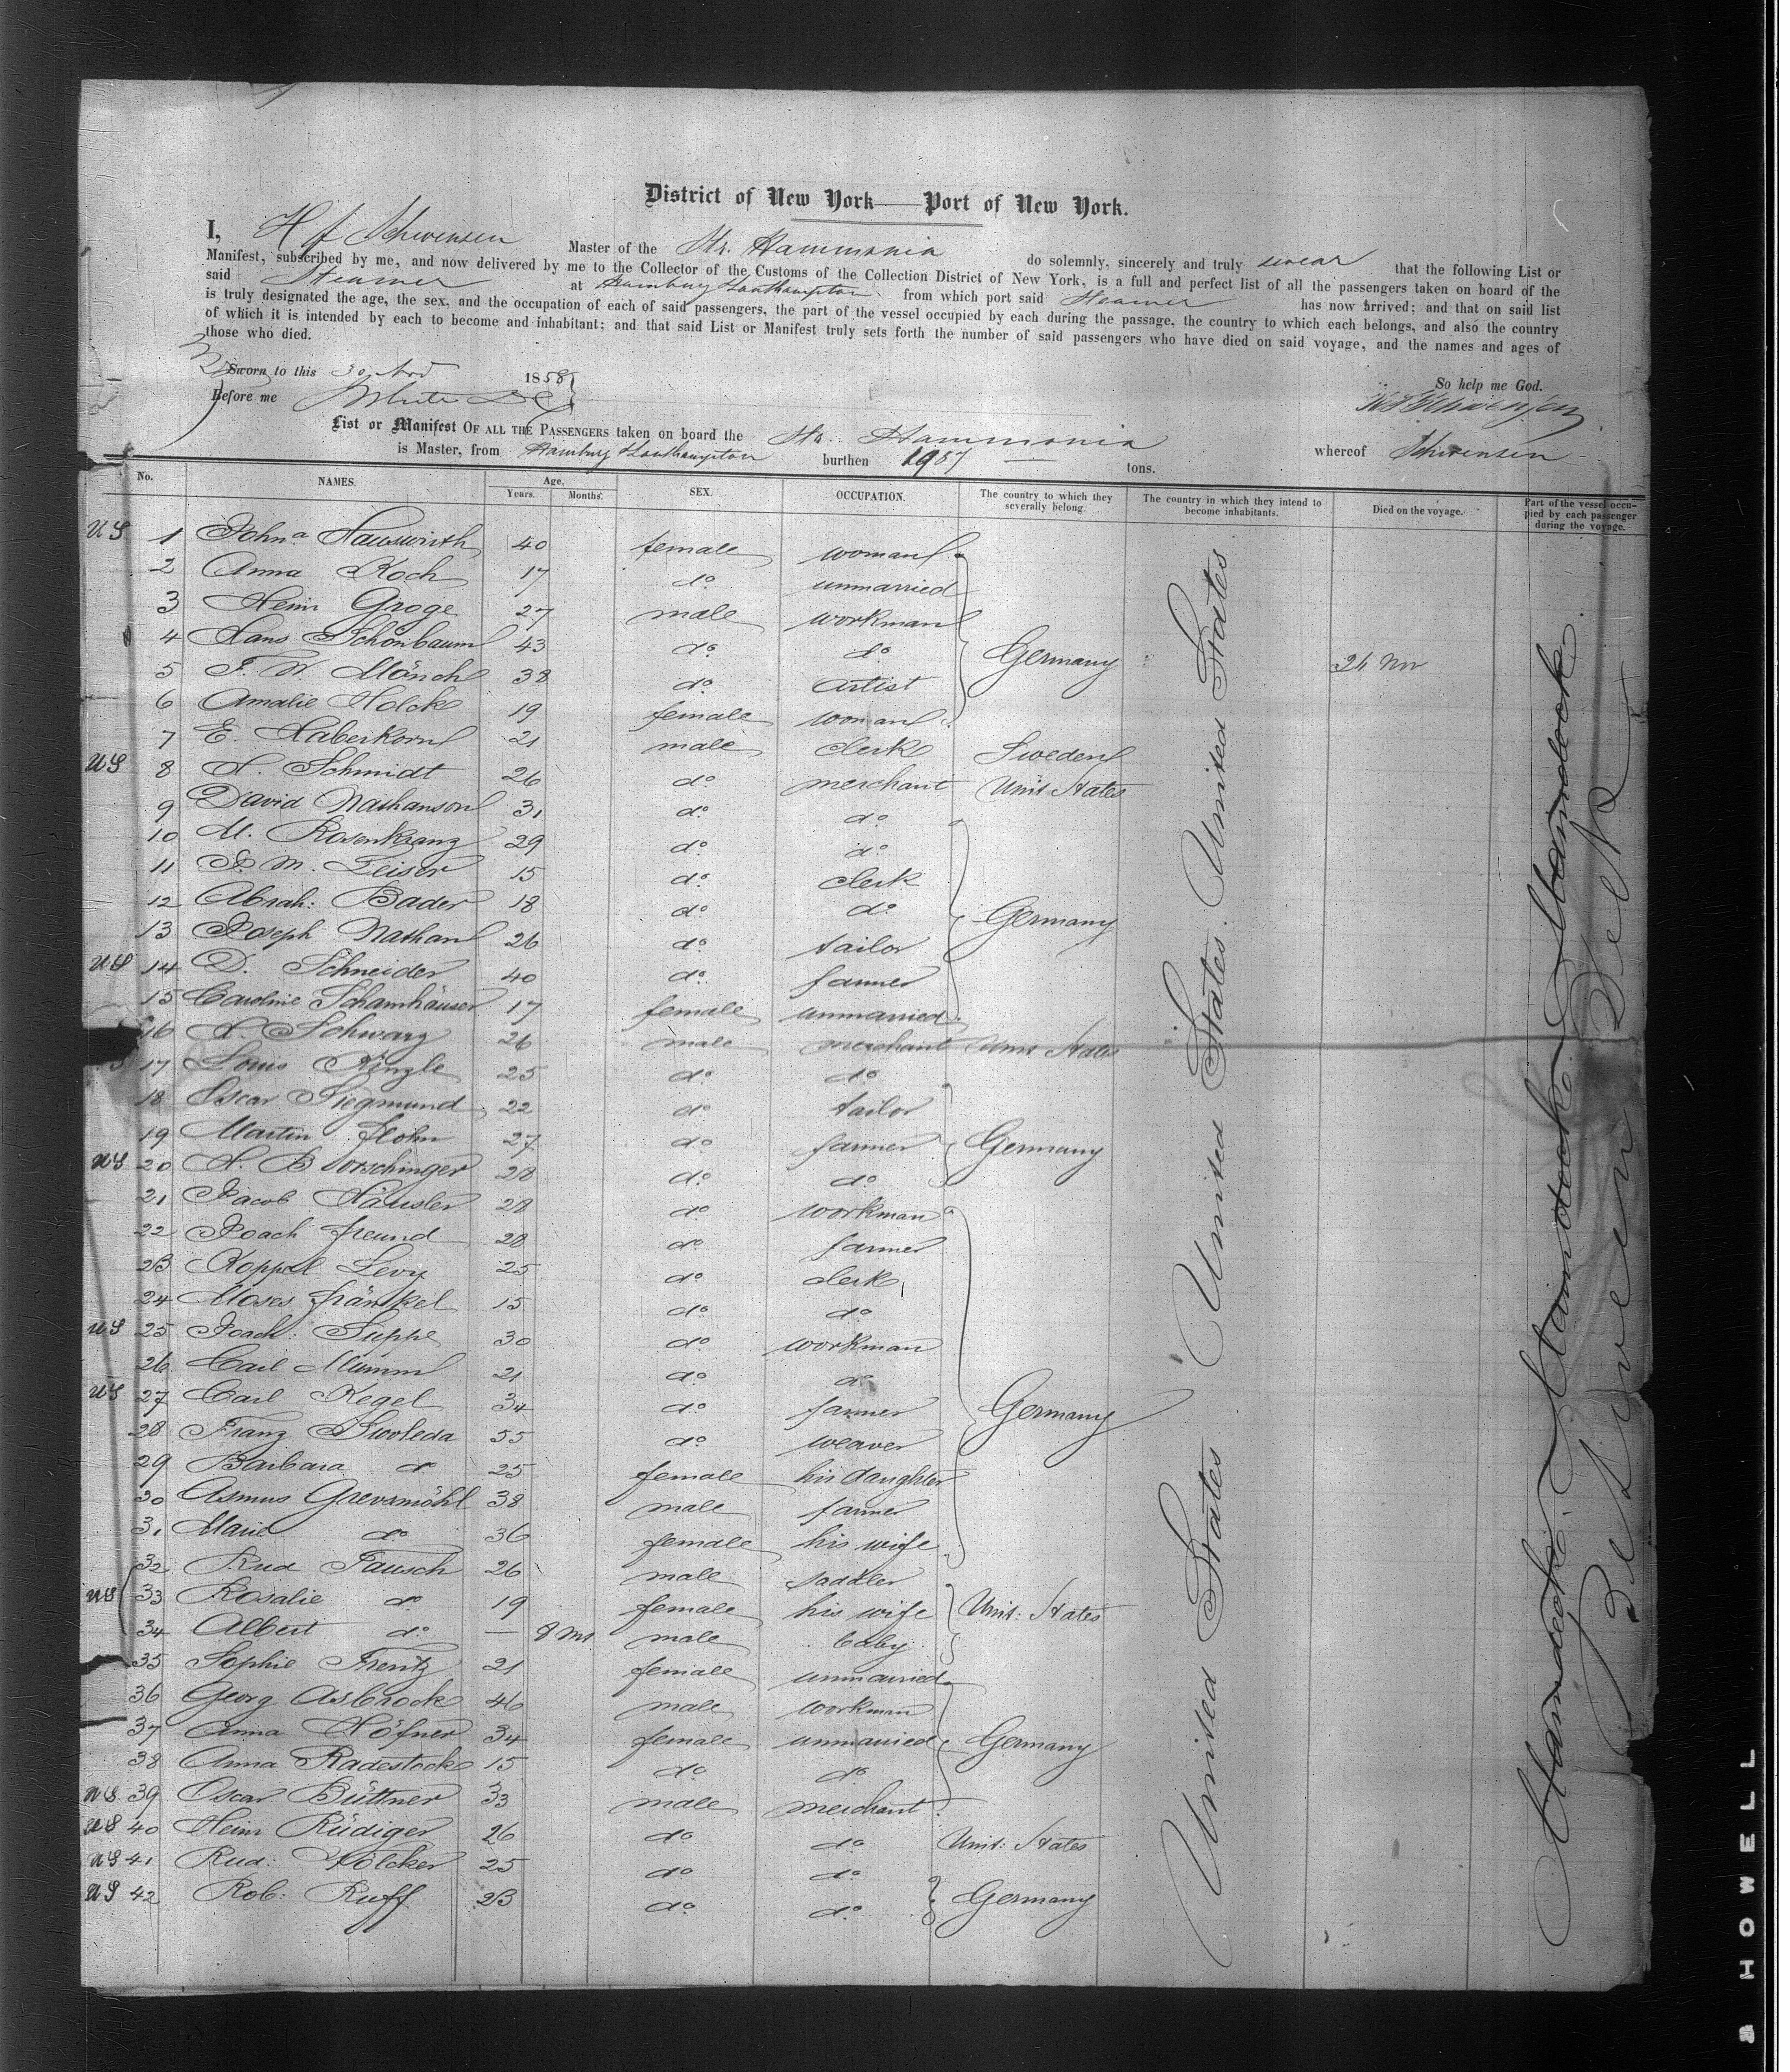 District of New York — Port of New York.
I, H f Schwensen Master of the Str. Hammonia do solemnly, sincerely and truly swear that the following List or
Manifest, subscribed by me, and now delivered by me to the Collector of the Customs of the Collection District of New York, is a full and perfect list of all the passengers taken on board of the
said Steamer at Hamburg & Southampton from which port said Steamer has now arrived; and that on said list
is truly designated the age, the sex, and the occupation of each of said passengers, the part of the vessel occupied by each during the passage, the country to which each belongs, and also the country
of which it is intended by each to become and inhabitant; and that said List or Manifest truly sets forth the number of said passengers who have died on said voyage, and the names and ages of
those who died.
Sworn to this 30 Nov 1858 So help me God.
Before me White DC
List or Manifest OF ALL THE PASSENGERS taken on board the Str. Hammonia whereof Schwensen
is Master, from Hamburg & Southampton burthen 1987 tons.
No. NAMES. Age. Years. Months. SEX. OCCUPATION. The country to which they severally belong. The country in which they intend to become inhabitants. Died on the voyage. Part of the vessel occupied by each passenger during the voyage.
US 1 Johna Hauswirth 40 female woman
2 Anna Koch 17 do unmarried
3 Heinr Groge 27 male workman
4 Hans Schönbaum 43 do do Germany 24 Nov
5 F. W. Mönch 38 do artist
6 Amalie Holck 19 female woman
7 E. Haberkorn 21 male clerk Sweden
US 8 H. Schmidt 26 do merchant Unit States
9 David Nathanson 31 do do
10 M. Rosenkranz 29 do do
11 J. M. Feiser 15 do clerk
12 Abrah: Bader 18 do do Germany
13 Joseph Nathan 26 do tailor
US 14 D. Schneider 40 do farmer
15 Caroline Schamhäuser 17 female unmarried
16 A. Schwarz 26 male merchant Unit States
17 Louis Kinzle 25 do do
18 Oscar Siegmund 22 do tailor
19 Martin Flohn 27 do farmer Germany
US 20 H. Borschinger 28 do do
21 Jacob Häusler 28 do workman
22 Joach Freund 28 do farmer
23 Koppel Levy 25 do clerk
24 Moses Fränkel 15 do do
US 25 Joach: Suppe 30 do workman
26 Carl Mumm 21 do do
US 27 Carl Kegel 34 do farmer Germany
28 Franz Swoleda 55 do weaver
29 Barbara do 25 female his daughter
30 Asmus Grevsmöhl 38 male farmer
31 Marie do 36 female his wife
32 Rud Fausch 26 male saddler
US 33 Rosalie do 19 female his wife Unit: States
34 Albert do — 8 ms male baby
35 Sophie Frentz 21 female unmarried
36 Georg Asbrock 46 male workman
37 Anna Höfner 34 female unmarried Germany
38 Anna Radestock 15 do do
US 39 Oscar Büttner 33 male merchant
US 40 Heinr Rüdiger 26 do do Unit: States
US 41 Rud: Völcker 25 do do
US 42 Rob: Ruff 23 do do Germany
United States United States United States. United States
Between Deck
& HOWELL